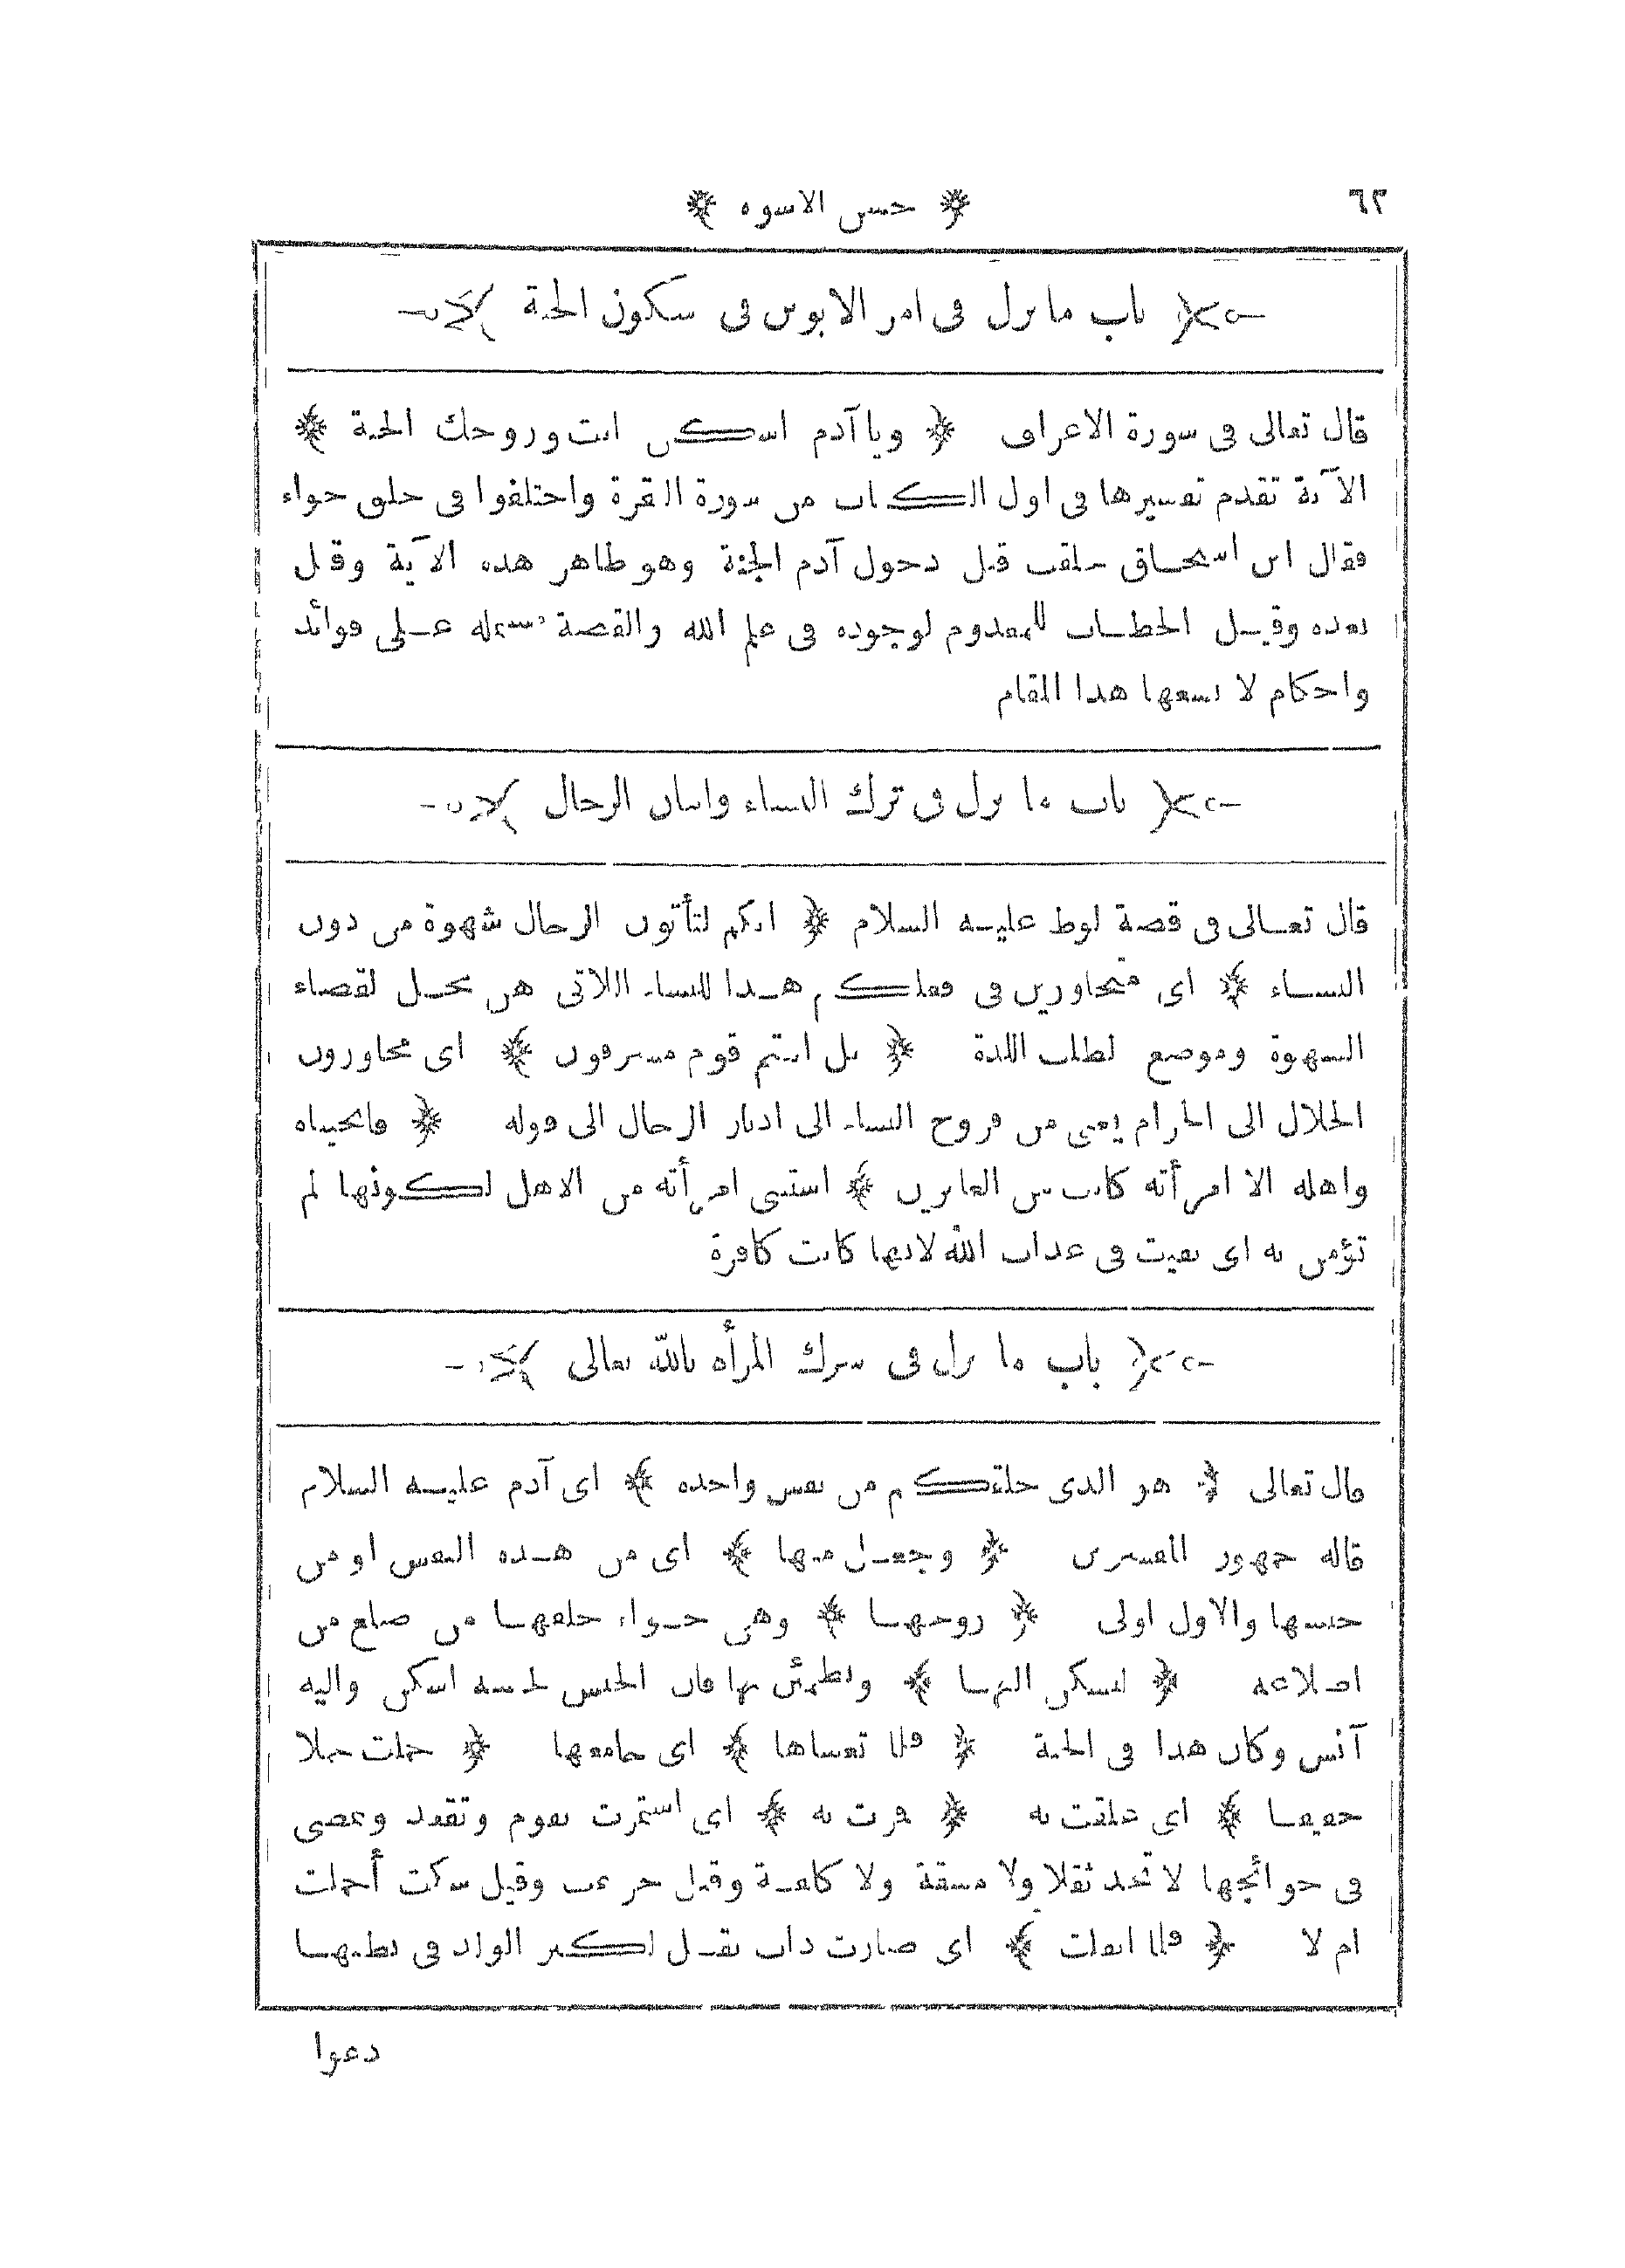 ٦٢ ﴿ حسن الاسوه ﴾
باب ما نزل فى امر الابوين فى سكون الجنة
قال تعالى فى سورة الاعراف ﴿ ويا آدم اسكن انت وزوجك الجنة ﴾
الآية تقدم تفسيرها فى اول الكتاب من سورة البقرة واختلفوا فى خلق حواء
فقال ابن اسحاق خلقت قبل دخول آدم الجنة وهو ظاهر هذه الآية وقيل
بعده وقيل الخطاب للمعدوم لوجوده فى علم الله والقصة مشتملة على فوائد
واحكام لا يسعها هذا المقام
باب ما نزل فى ترك النساء واتيان الرجال
قال تعالى فى قصة لوط عليه السلام ﴿ انكم لتأتون الرجال شهوة من دون
النساء ﴾ اى متجاوزين فى فعلكم هذا للنساء اللاتى هن محل لقضاء
الشهوة وموضع لطلب اللذة ﴿ بل انتم قوم مسرفون ﴾ اى مجاوزون
الحلال الى الحرام يعنى من فروج النساء الى ادبار الرجال الى قوله ﴿ فانجيناه
واهله الا امرأته كانت من الغابرين ﴾ استثنى امرأته من الاهل لكونها لم
تؤمن به اى بقيت فى عذاب الله لانها كانت كافرة
باب ما نزل فى شرك المرأه بالله تعالى
قال تعالى ﴿ هو الذى خلقكم من نفس واحده ﴾ اى آدم عليه السلام
قاله جمهور المفسرين ﴿ وجعل منها ﴾ اى من هذه النفس او من
جنسها والاول اولى ﴿ زوجها ﴾ وهى حواء خلقها من ضلع من
اضلاعه ﴿ ليسكن اليها ﴾ وليطمئن بها فان الجنس لجنسه اسكن واليه
آنس وكان هذا فى الجنة ﴿ فلما تغشاها ﴾ اى جامعها ﴿ حملت حملا
خفيفا ﴾ اى علقت به ﴿ فمرت به ﴾ اى استمرت تقوم وتقعد وتمضى
فى حوائجها لا تجد ثقلا ولا مشقة ولا كلفة وقيل جزعت وقيل شكت أحملت
ام لا ﴿ فلما اثقلت ﴾ اى صارت ذات ثقل لكبر الولد فى بطنها
دعوا